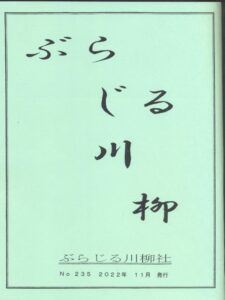 ぶらじる川柳
ぶらじる川柳社
No 235 2022年 11月 発行